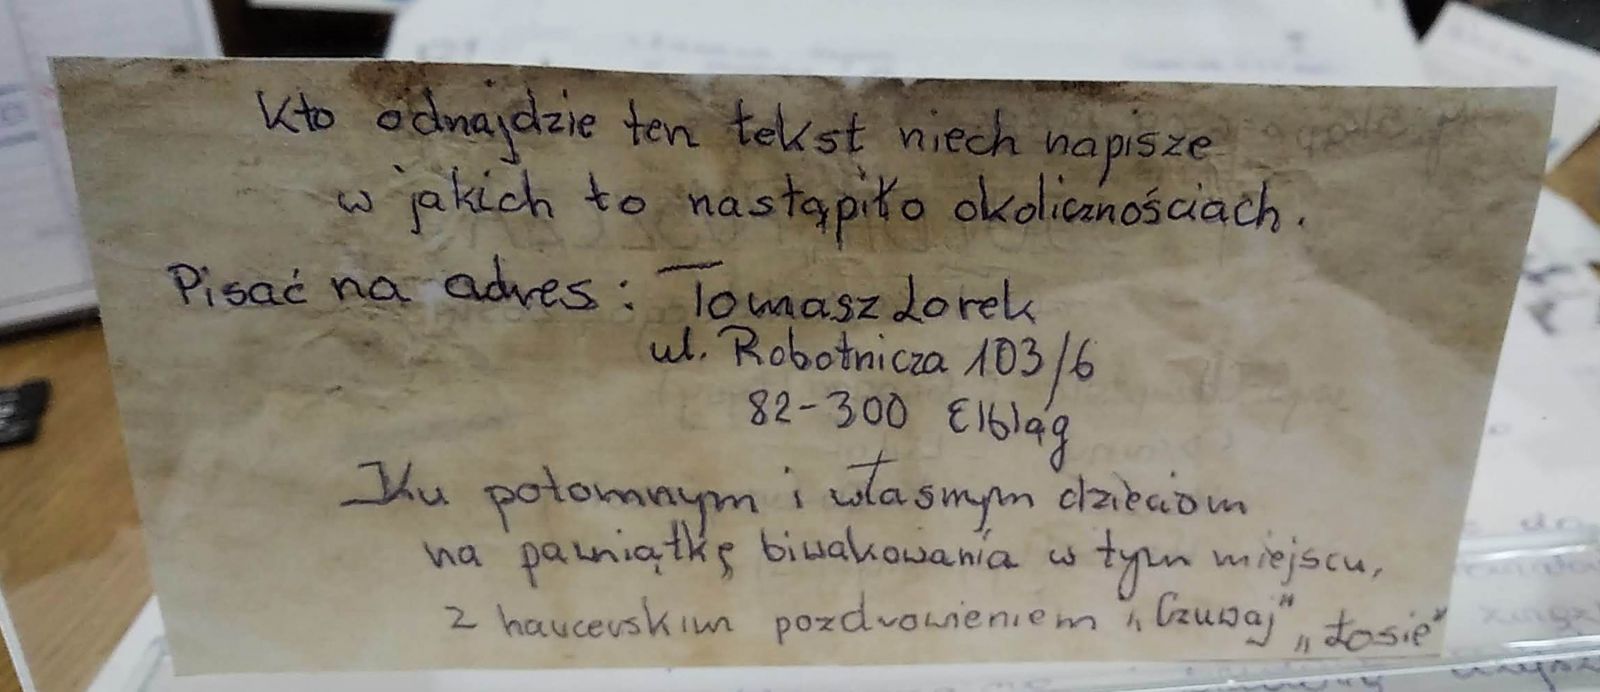 Kto odnajdzie ten tekst niech napisze
w jakich to nastąpiło okolicznościach.
Pisać na adres: Tomasz Lorek
ul. Robotnicza 103/6
82-300 Elbląg
Ku potomnym i własnym dzieciom
na pamiątkę biwakowania w tym miejscu,
z harcerskim pozdrowieniem „Czuwaj" „Łosie"